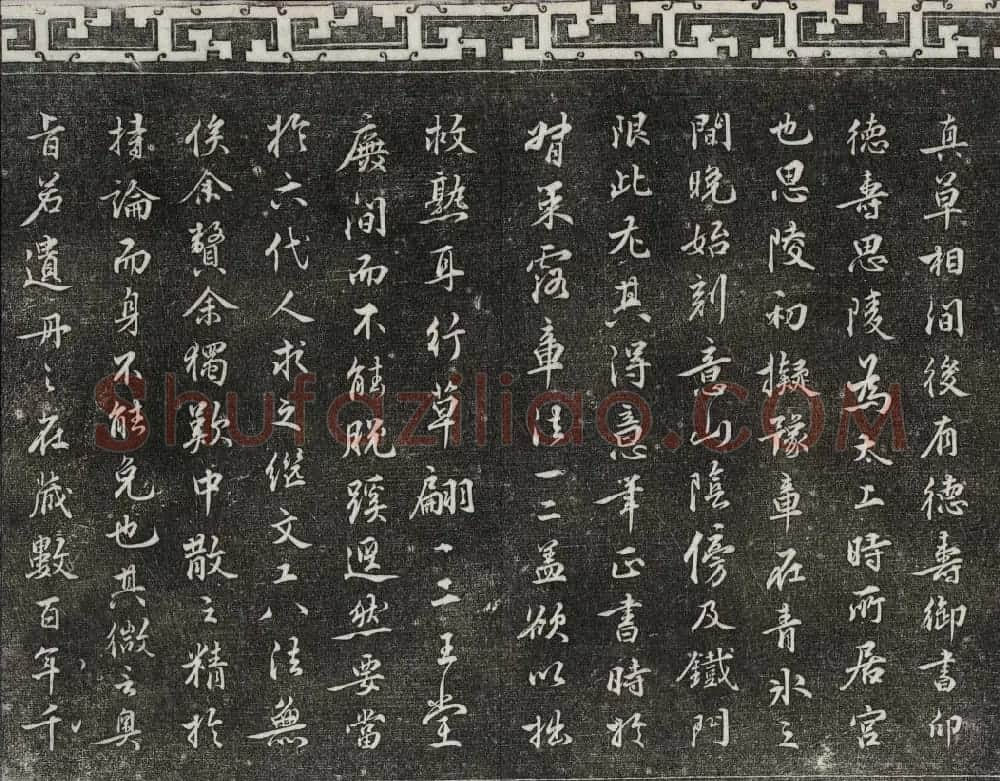 真草相間後有德壽御書卯
德壽思陵為太上時所居宮
也思陵初擬豫章在青冰之
間晚始刻意山陰傍及鐵門
限此尤其得意筆正書時於
策露章法一二蓋欲以拙
救熟耳行草翩々二王堂
廡間而不能脫蹊逕然要當
於六代人求之繼文工八法無
俟余贊余獨歎中散之精於
持論而身不能免也其微言奧
旨若遺丹々在藏數百年千
Shufaziliao.COM